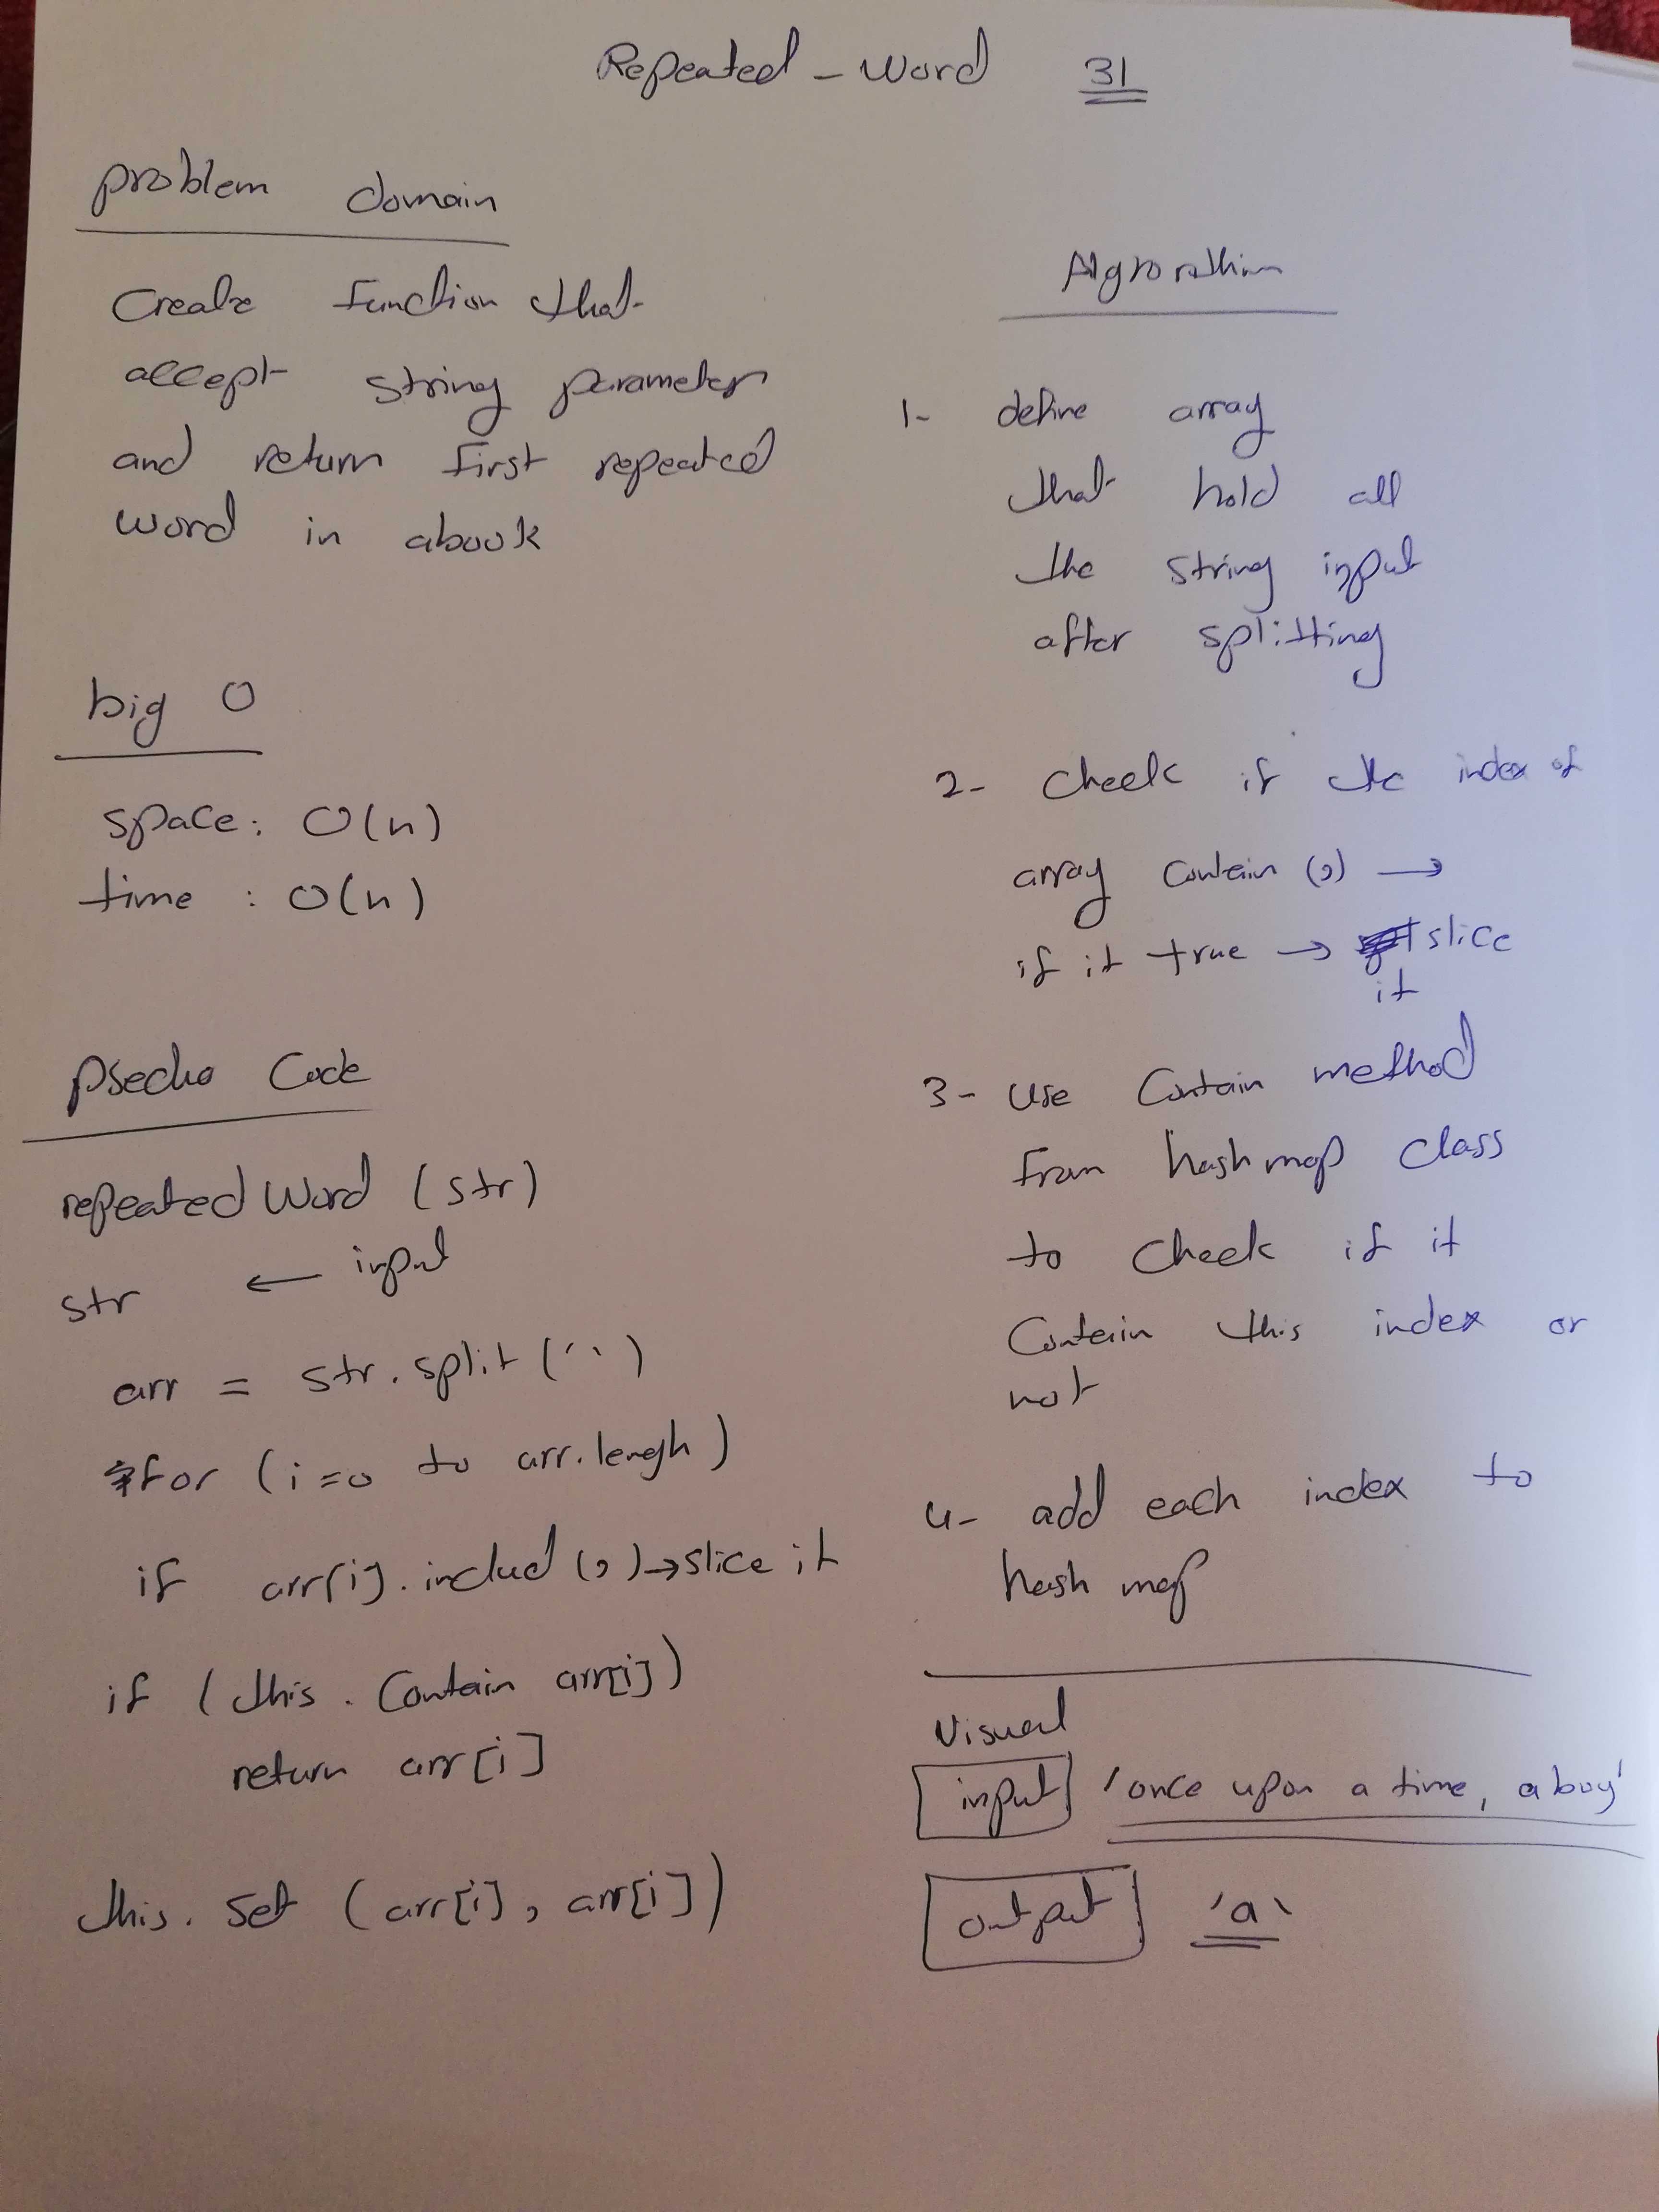 Repeated - Word 31
problem domain
Create function that
accept string parameter
and return first repeated
word in abook
big O
space: O(n)
time : O(n)
Psecho Code
repeated Word (str)
str ← input
arr = str.split(' ')
for (i=0 to arr.lengh)
if arr[i].includ (,)→slice it
if (this. Contain arr[i])
return arr[i]
this. Set (arr[i], arr[i])
Algrorathim
1- define array
that hold all
the string input
after splitting
2- Check if the index of
array contain (,) →
if it true → slice
it
3- Use Contain method
from hashmap class
to Check if it
Contain this index or
not
4- add each index to
hash map
Visual
input 'once upon a time, a boy'
output 'a'